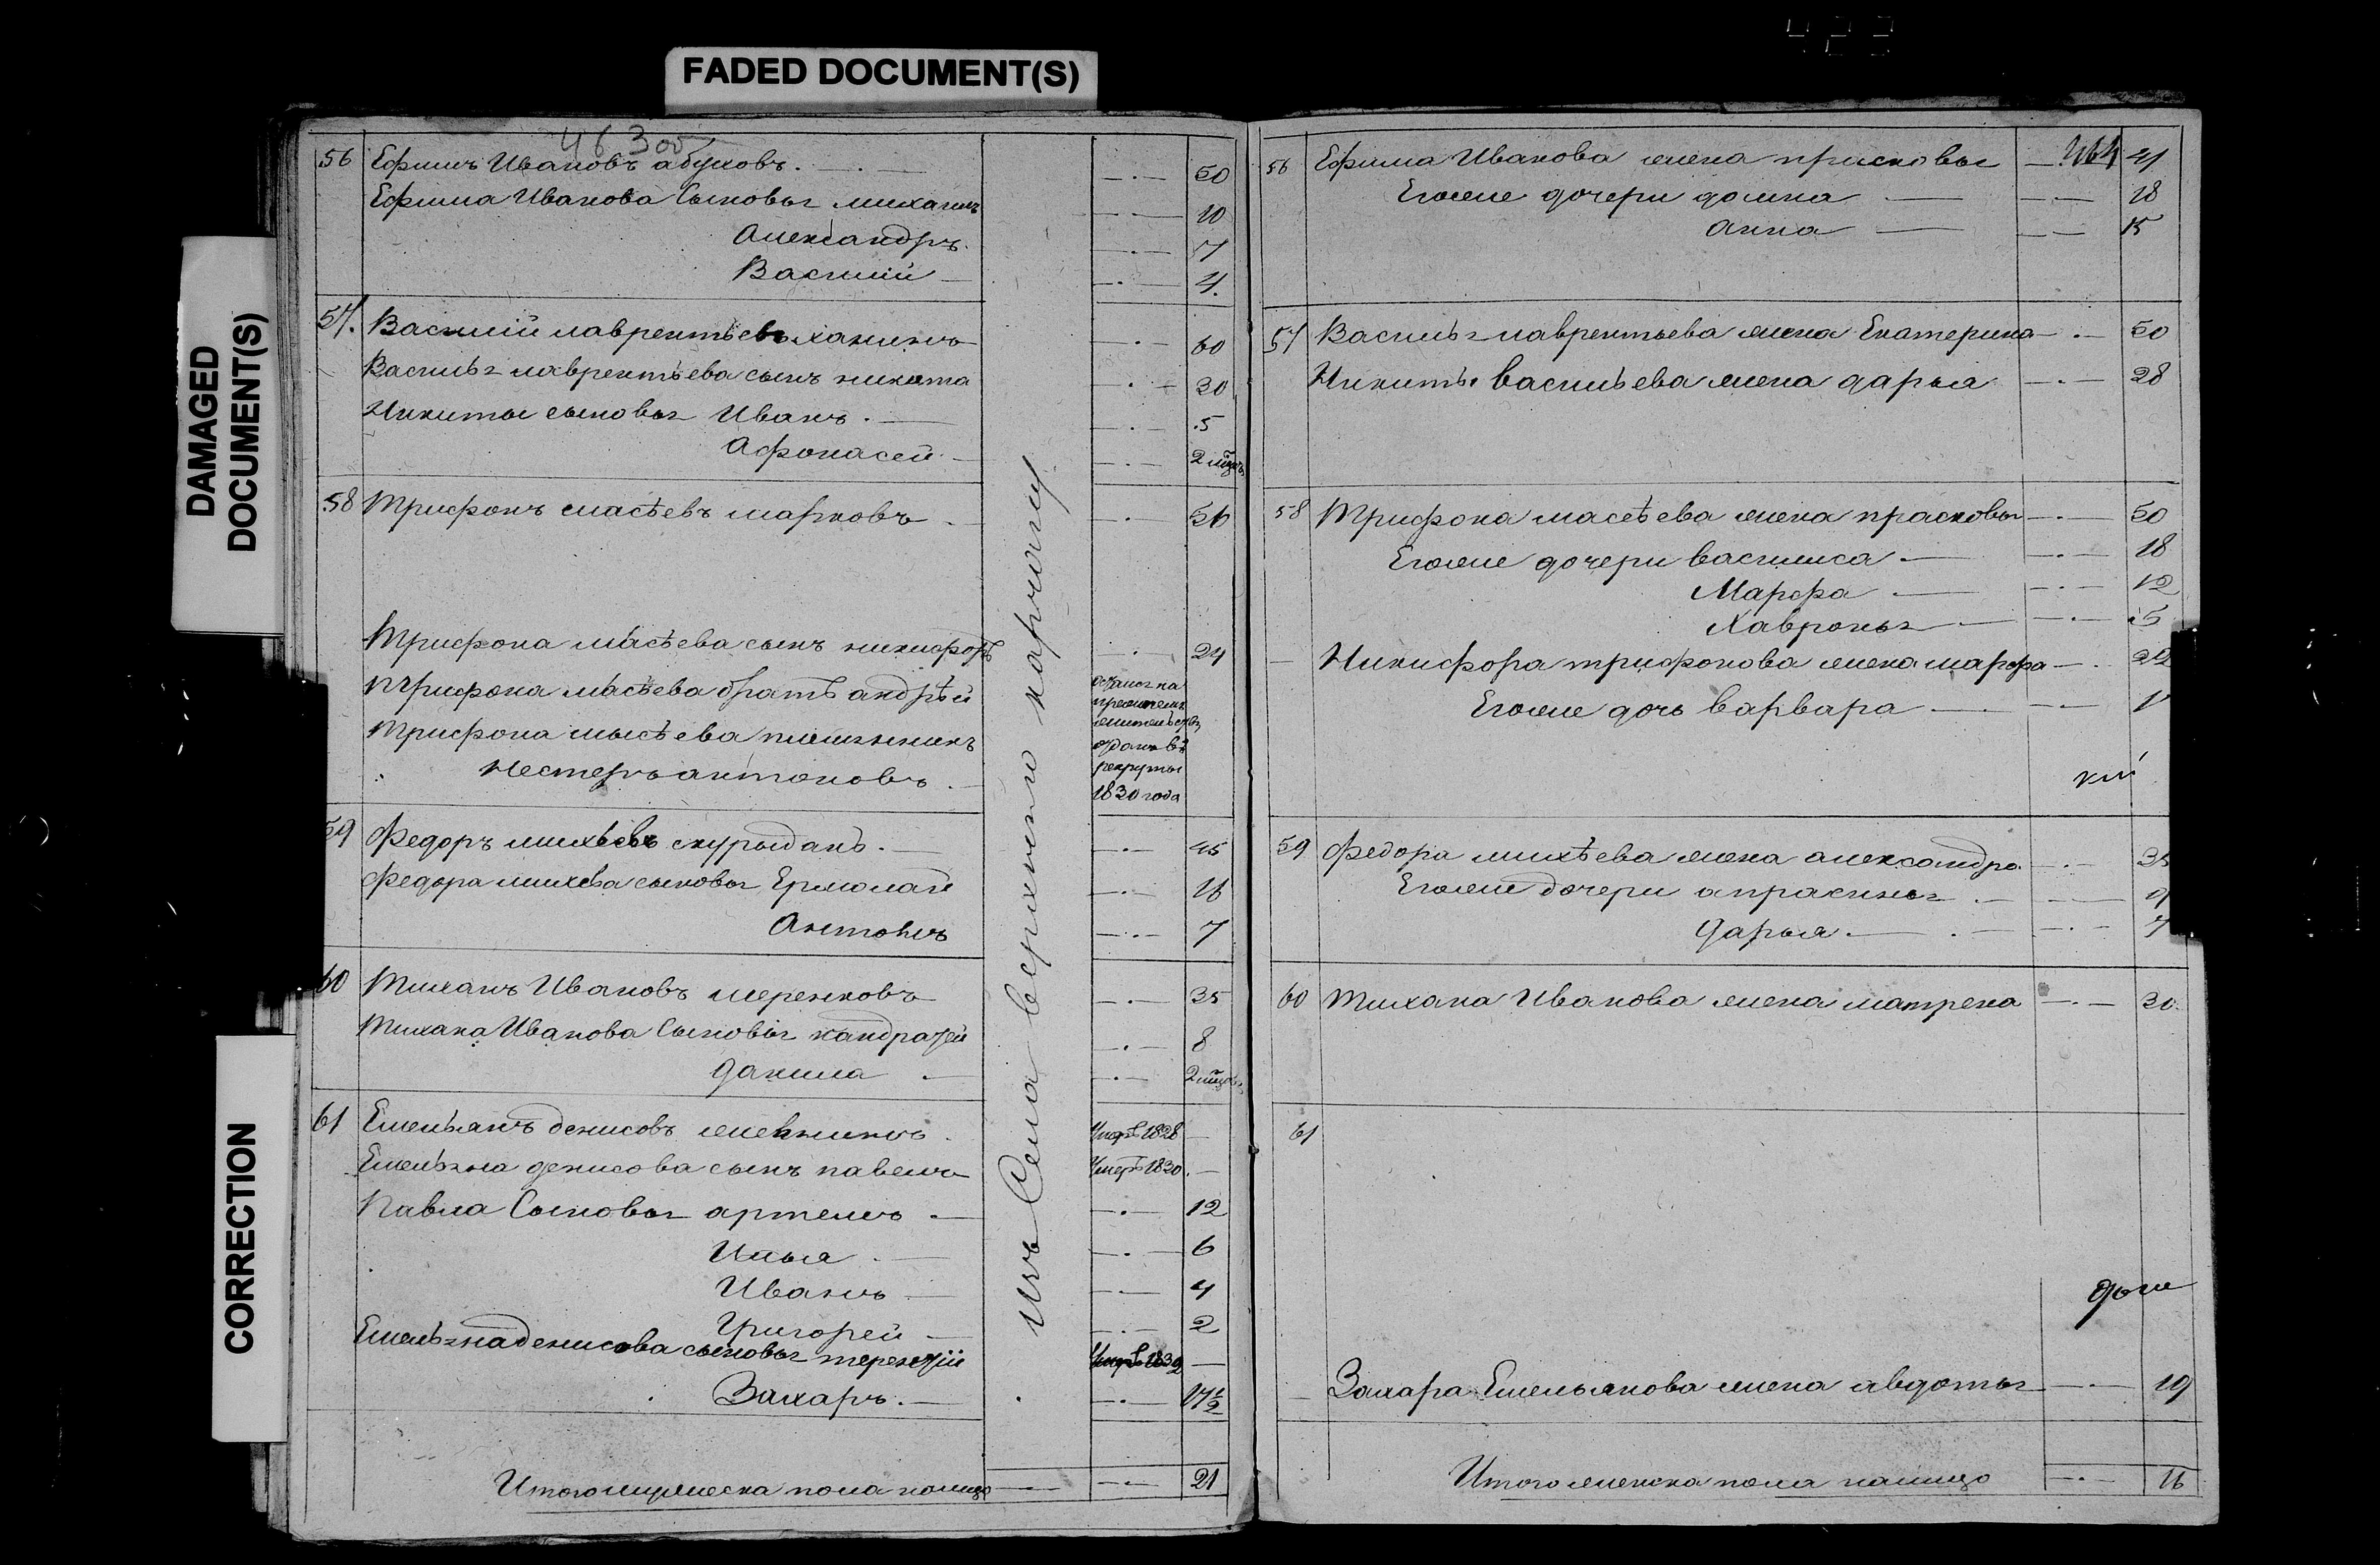 FADED DOCUMENT(S)
DAMAGED DOCUMENT(S)
CORRECTION
56 Ефимъ Ивановъ абуховъ. 50
Ефима Иванова Сыновья михаилъ 10
Александръ. 7
Василий 4.
57. Василий лаврентьевъ ханинъ 60
Василья лаврентьева сынъ никита 30
Никиты сыновья Иванъ. 5
Афонасей 2 мѣсяц.
58 Трифонъ масѣевъ марковъ
Трифона масѣева сынъ никифоръ 24
Трифона масѣева братъ андрѣй
Трифона мысѣева племянникъ отданъ въ
Нестеръ антоновъ рекруты
1830 года
59 Федоръ михѣевъ скурыданъ. 45
Федора михева сыновья Ермолай 16
Антонъ 7
60 Тиханъ Ивановъ меренковъ 35
Тихана Иванова Сыновья кандратей 8
данила 2 мѣсяц.
61 Емельянъ денисовъ Умеръ 1828
Емельяна денисова сынъ павелъ Умеръ 1830
Павла Сыновья артемъ 12
Илья 6
Иванъ 4
Григорей 2
Емельяна денисова сыновья терентий
Захаръ. 17½
Итого мужеска пола налицо 21
изъ Села верхнего
56 Ефима Иванова жена прасковья 41
Егоже дочери домна 18
анна 15
57 Василья лаврентьева жена Екатерина 50
Никиты васильева жена дарья 28
58 Трифона масеѣва жена прасковья 50
Егоже дочери василиса 18
Марфа 12
Хавронья 5
Никифора трифонова жена марфа 22
Егоже дочь варвара 1
59 Федора михѣева жена александра 35
Егоже дочери апраксинья 9
дарья 7
60 Тихана Иванова жена матрена 30
61
Захара Емельянова жена авдотья 19
Итого женска пола налицо 16